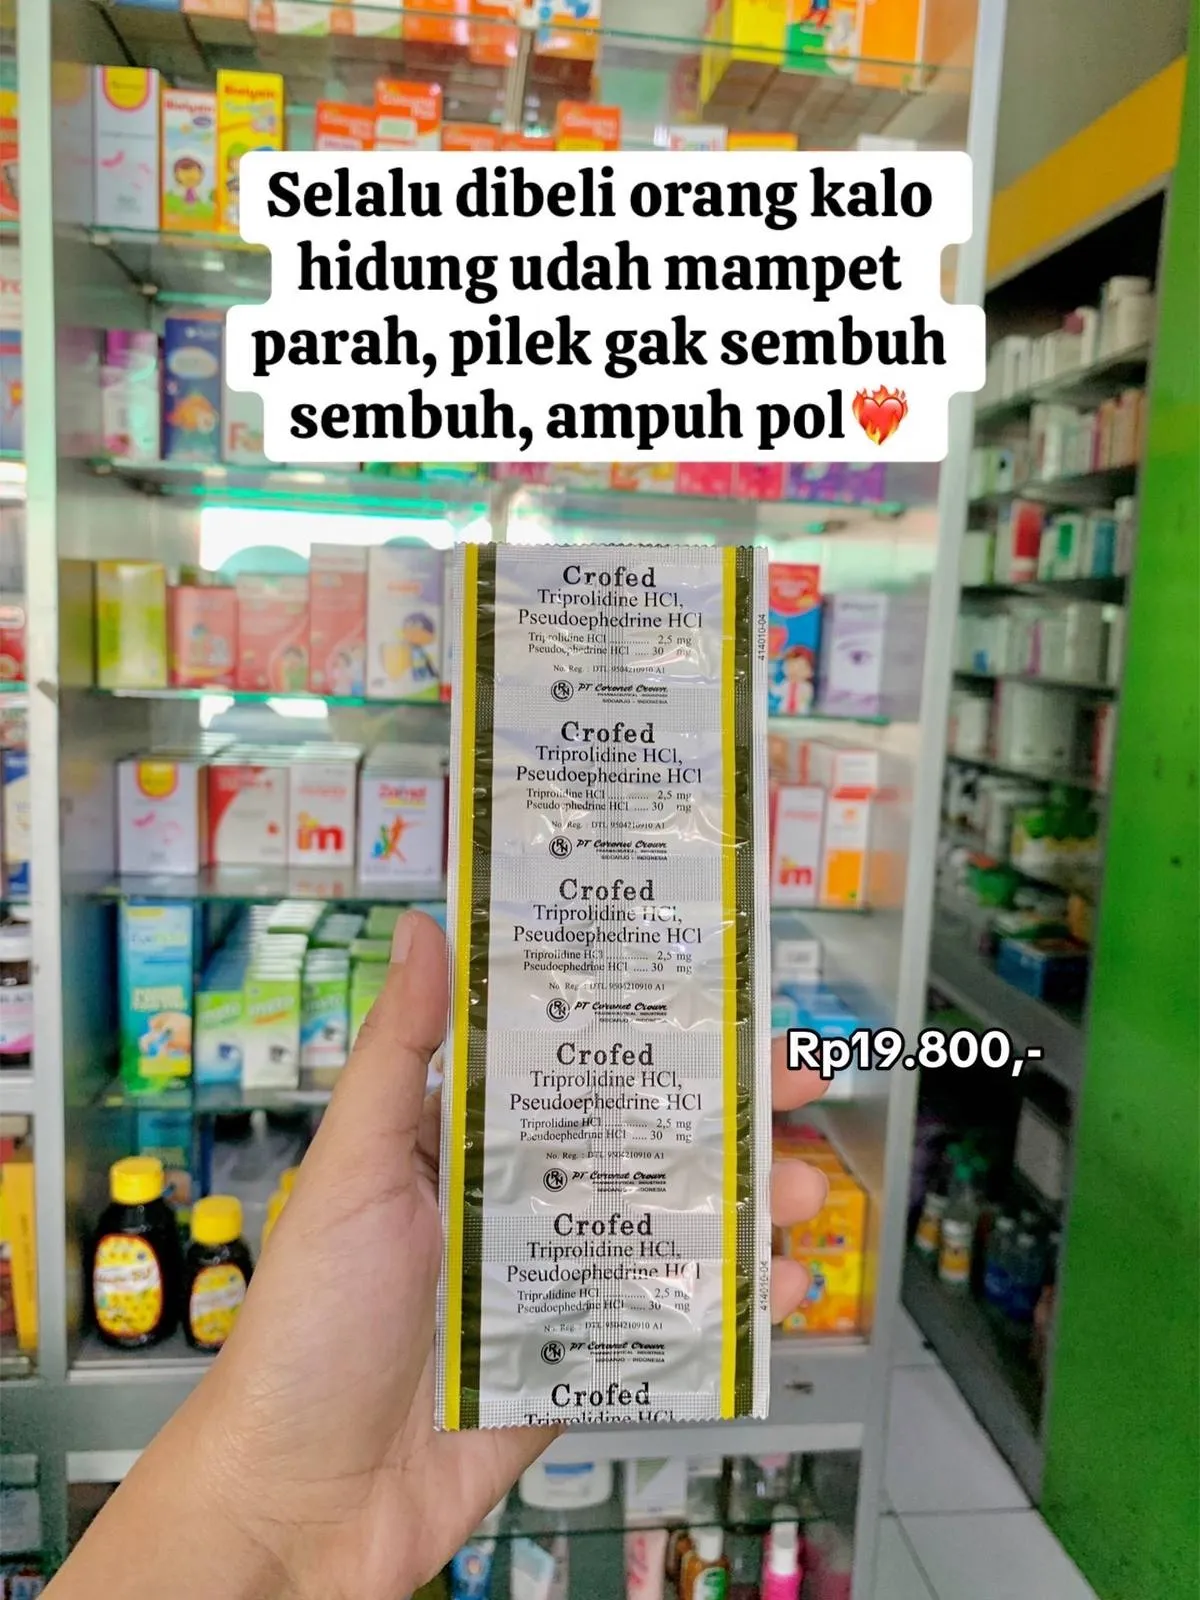 Selalu dibeli orang kalo
hidung udah mampet
parah, pilek gak sembuh
sembuh, ampuh pol❤️‍🔥
Crofed
Triprolidine HCl,
Pseudoephedrine HCl
Triprolidine HCl ............ 2,5 mg
Pseudoephedrine HCl ..... 30 mg
No. Reg. : DTL 9504210910 A1
PT Coronet Crown
PHARMACEUTICAL INDUSTRIES
SIDOARJO - INDONESIA
414010-04
Crofed
Triprolidine HCl,
Pseudoephedrine HCl
Triprolidine HCl ............ 2,5 mg
Pseudoephedrine HCl ..... 30 mg
No. Reg. DTL 9504210910 A1
PT Coronet Crown
PHARMACEUTICAL INDUSTRIES
SIDOARJO - INDONESIA
Crofed
Triprolidine HCl,
Pseudoephedrine HCl
Triprolidine HCl ............ 2,5 mg
Pseudoephedrine HCl ..... 30 mg
No. Reg. : DTL 9504210910 A1
PT Coronet Crown
PHARMACEUTICAL INDUSTRIES
SIDOARJO - INDONESIA
Rp19.800,-
Crofed
Triprolidine HCl,
Pseudoephedrine HCl
Triprolidine HCl ............ 2,5 mg
Pseudoephedrine HCl ..... 30 mg
No. Reg. : DTL 9504210910 A1
PT Coronet Crown
PHARMACEUTICAL INDUSTRIES
SIDOARJO - INDONESIA
Crofed
Triprolidine HCl,
Pseudoephedrine HCl
Triprolidine HCl ............ 2,5 mg
Pseudoephedrine HCl ..... 30 mg
No. Reg. DTL 9504210910 A1
PT Coronet Crown
PHARMACEUTICAL INDUSTRIES
SIDOARJO - INDONESIA
414010-04
Crofed
Triprolidine HCl,
im
im